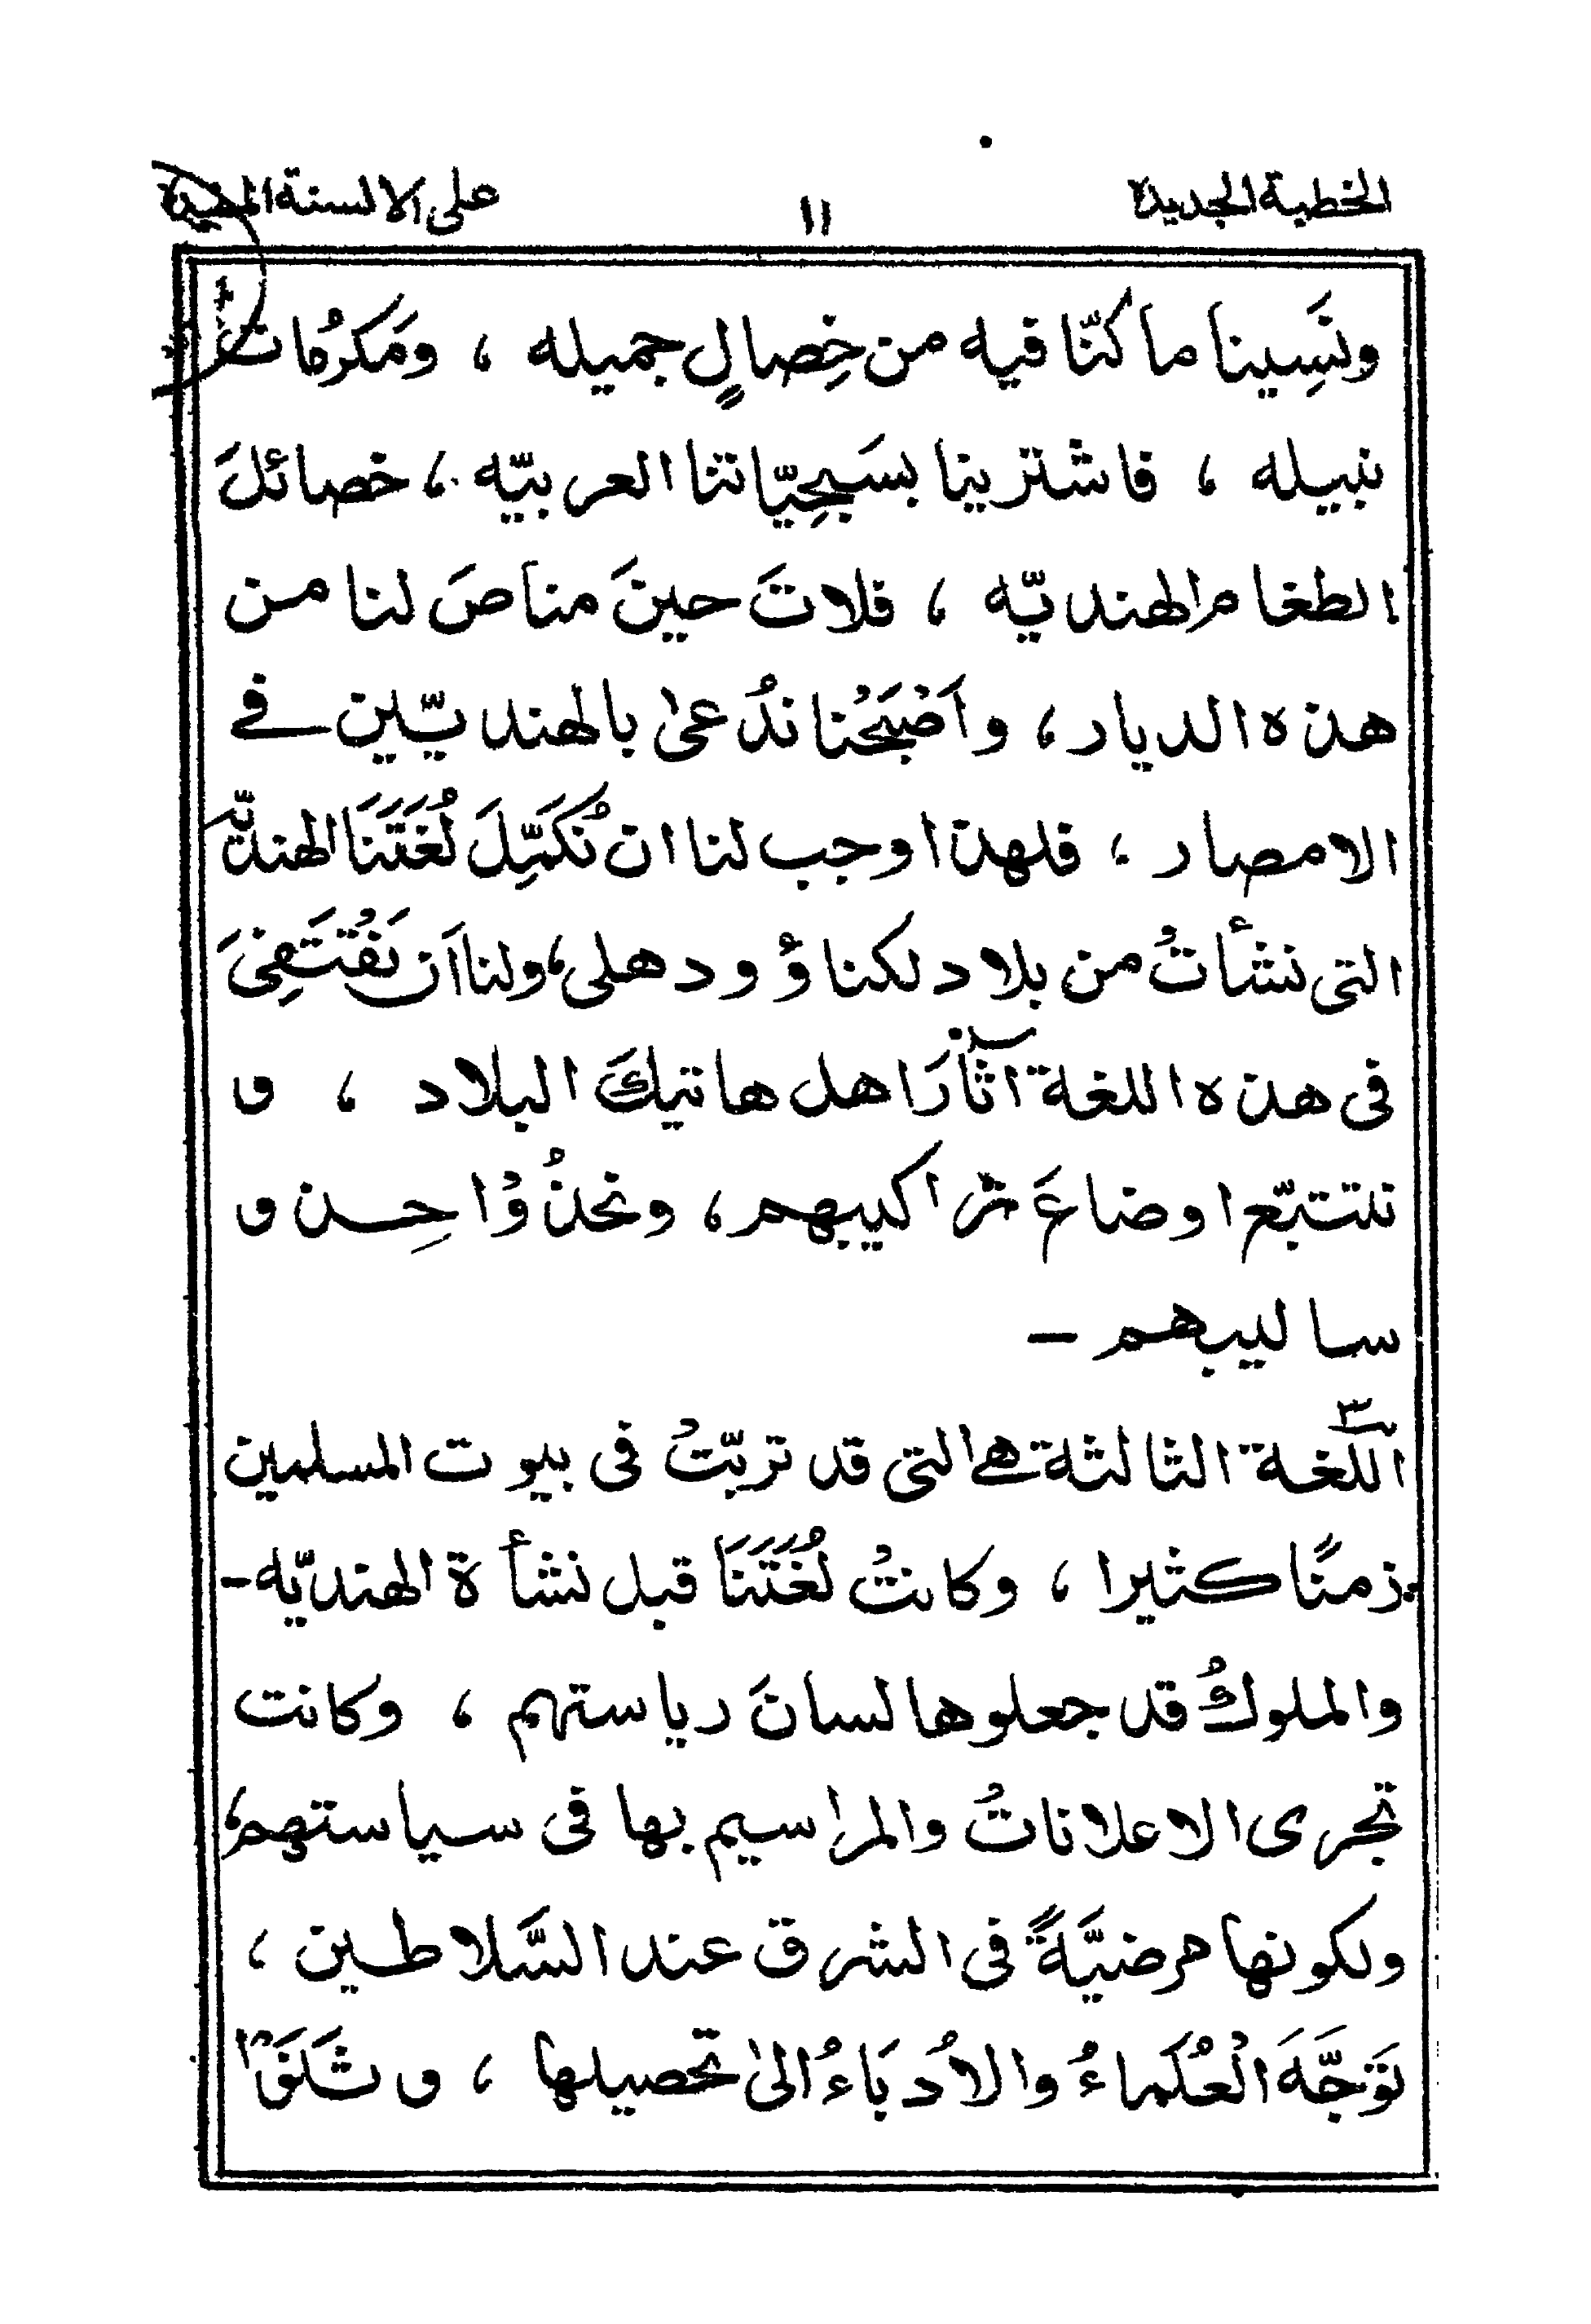 الخطبة الجديدة ١١ على الالسنة المفيدة
ونَسِينا ما كنّا فيه من خِصالٍ جميله ، ومَكرُمات
نبيله ، فاشترينا بسَجِيّاتنا العربيّه ، خصائلَ
الطغام الهنديّه ، فلاتَ حينَ مناصَ لنا من
هذه الديار ، واَصْبَحْنا ندُعىٰ بالهنديّين فے
الامصار ، فلهذا وجب لنا ان نُكَمِّلَ لُغَتَنَا الهنديّه
التى نشأتْ من بلاد لكناؤ و دهلى ، ولنا اَن نَقْتَفِىَ
فى هذه اللغة آثارَ اهل هاتيكَ البلاد ، و
نتتبّع اوضاعَ تراكيبهم ، ونحذُوْا حِذو
ساليبهم –
٣ اللغة الثالثة هے التى قد تربّتْ فى بيوت المسلمين
زمنًا كثيرا ، وكانتْ لُغَتَنَا قبل نشأة الهنديّه –
والملوكُ قد جعلوها لسانَ رياستهم ، وكانت
تجرى الاعلاناتُ والمراسيم بها فى سياستهم ،
ولكونها مرضيَّةً فى الشرق عند السَّلاطين ،
تَوَجَّهَ الْعُلَماءُ والاُدَبَاءُ الىٰ تحصيلها ، و